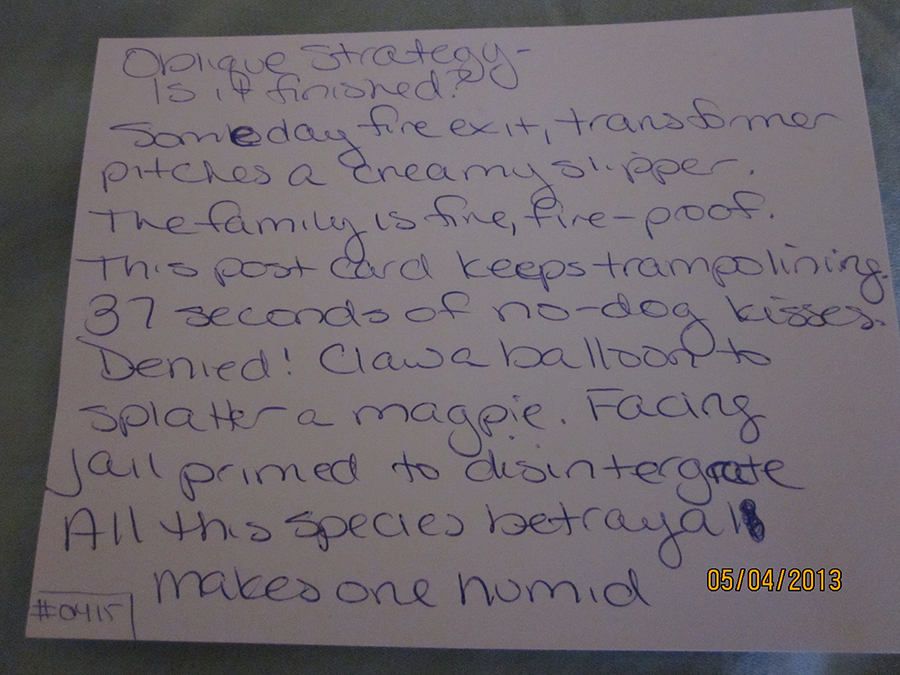 Oblique Strategy-
Is it finished?
Someday fire exit, transformer
pitches a creamy slipper.
The family is fine, fire-proof.
This post card keeps trampolining.
37 seconds of no-dog kisses.
Denied! Claw a balloon to
splatter a magpie. Facing
jail primed to disintergrate
All this species betrayal
makes one humid
#0415
05/04/2013